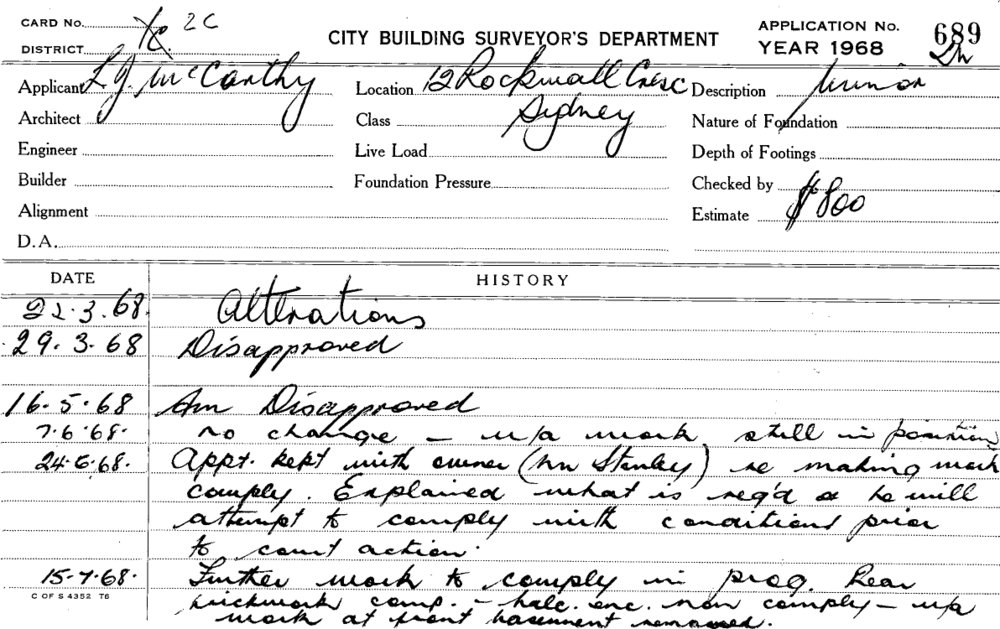 CARD No. 2C
DISTRICT
CITY BUILDING SURVEYOR'S DEPARTMENT
APPLICATION No. 689
YEAR 1968
Applicant L.J. McCarthy
Location 12 Rockwall Cresc
Sydney
Description Minor
Architect
Class
Nature of Foundation
Engineer
Live Load
Depth of Footings
Builder
Foundation Pressure
Checked by
Alignment
Estimate $800
D.A.
DATE HISTORY
22.3.68. Alterations
29.3.68 Disapproved
16.5.68 Am Disapproved
7.6.68. no change – u/a work still in position
24.6.68. Appt. kept with owner (Mr Stanley) re making work
comply. Explained what is req'd & he will
attempt to comply with conditions prior
to court action.
15.7.68. Further work to comply in prog. Rear
brickwork comp. – balc. enc. now comply – u/a
work at front basement removed.
C OF S 4352 T6